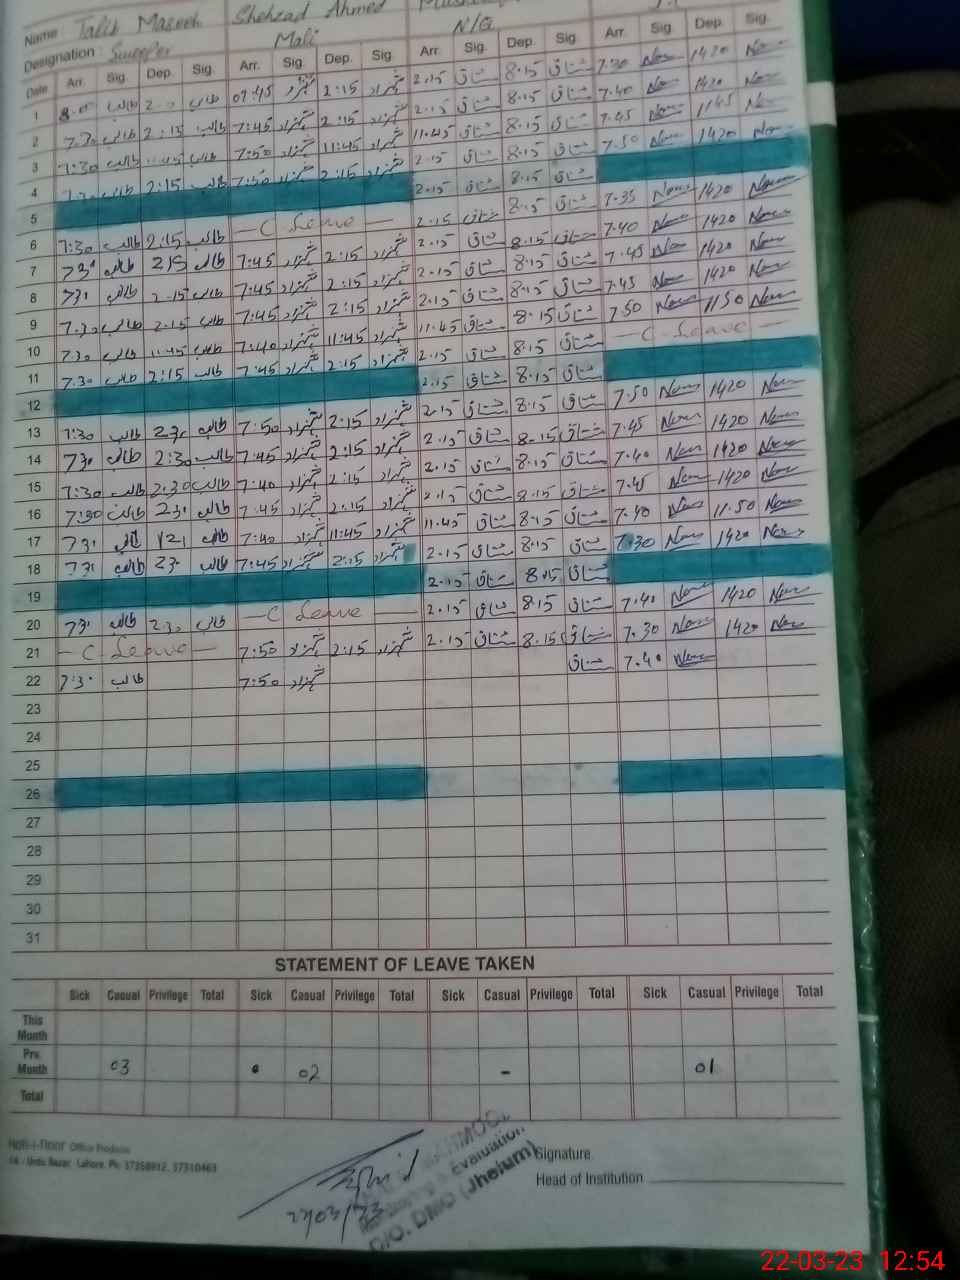 Name : Talib Maseeh Shehzad Ahmed
Designation : Sweeper Mali N/Q
Date Arr. Sig. Dep. Sig. Arr. Sig. Dep. Sig. Arr. Sig. Dep. Sig. Arr. Sig. Dep. Sig.
1 8.00 طالب 2.0 طالب 07:45 شہزاد 2:15 شہزاد 2.15 مشتاق 8.15 مشتاق 7.30 1420
2 7.30 طالب 2:15 طالب 7:45 شہزاد 2:15 شہزاد 2.15 مشتاق 8.15 مشتاق 7.40 1420
3 7:30 طالب 11:45 طالب 7:50 شہزاد 11:45 شہزاد 11.45 مشتاق 8.15 مشتاق 7.45 1145
4 7.30 طالب 2:15 طالب 7:50 شہزاد 2:15 شہزاد 2.15 مشتاق 8.15 مشتاق 7.50 1420
5 2.15 مشتاق 8.15 مشتاق
6 7:30 طالب 2:15 طالب — C Leave — 2.15 مشتاق 8.15 مشتاق 7.35 1420
7 730 طالب 215 طالب 7:45 شہزاد 2:15 شہزاد 2.15 مشتاق 8.15 مشتاق 7.40 1420
8 730 طالب 2.15 طالب 7:45 شہزاد 2:15 شہزاد 2.15 مشتاق 8.15 مشتاق 7.45 1420
9 7.30 طالب 2.15 طالب 7:45 شہزاد 2:15 شہزاد 2.15 مشتاق 8.15 مشتاق 7.45 1420
10 7.30 طالب 11:45 طالب 7:40 شہزاد 11:45 شہزاد 11.45 مشتاق 8.15 مشتاق 7.50 1150
11 7.30 طالب 2:15 طالب 7:45 شہزاد 2:15 شہزاد 2.15 مشتاق 8.15 مشتاق — C Leave —
12 2.15 مشتاق 8.15 مشتاق
13 7:30 طالب 230 طالب 7:50 شہزاد 2:15 شہزاد 2.15 مشتاق 8.15 مشتاق 7.50 1420
14 730 طالب 2:30 طالب 7:45 شہزاد 2:15 شہزاد 2.15 مشتاق 8.15 مشتاق 7.45 1420
15 7:30 طالب 2:30 طالب 7:40 شہزاد 2:15 شہزاد 2.15 مشتاق 8.15 مشتاق 7.40 1420
16 7:30 طالب 230 طالب 7:45 شہزاد 2:15 شہزاد 2.15 مشتاق 8.15 مشتاق 7.45 1420
17 730 طالب طالب 7:40 شہزاد 11:45 شہزاد 11.45 مشتاق 8.15 مشتاق 7.40 11.50
18 730 طالب 230 طالب 7:45 شہزاد 2:15 شہزاد 2.15 مشتاق 8.15 مشتاق 7.30 1420
19 2.15 مشتاق 8.15 مشتاق
20 730 طالب 2.30 طالب — C Leave — 2.15 مشتاق 8.15 مشتاق 7.40 1420
21 — C Leave — 7:50 شہزاد 2:15 شہزاد 2.15 مشتاق 8.15 مشتاق 7.30 1420
22 7:30 طالب 7:50 شہزاد مشتاق 7.40
23
24
25
26
27
28
29
30
31
STATEMENT OF LEAVE TAKEN
Sick Casual Privilege Total Sick Casual Privilege Total Sick Casual Privilege Total Sick Casual Privilege Total
This Month
Prv. Month 03 02 - 01
Total
Office Products
14 - Urdu Bazar, Lahore. Ph: 37358912, 37310463
Signature
Head of Institution
Evaluation
D/O. DMO (Jhelum)
22-03-23 12:54